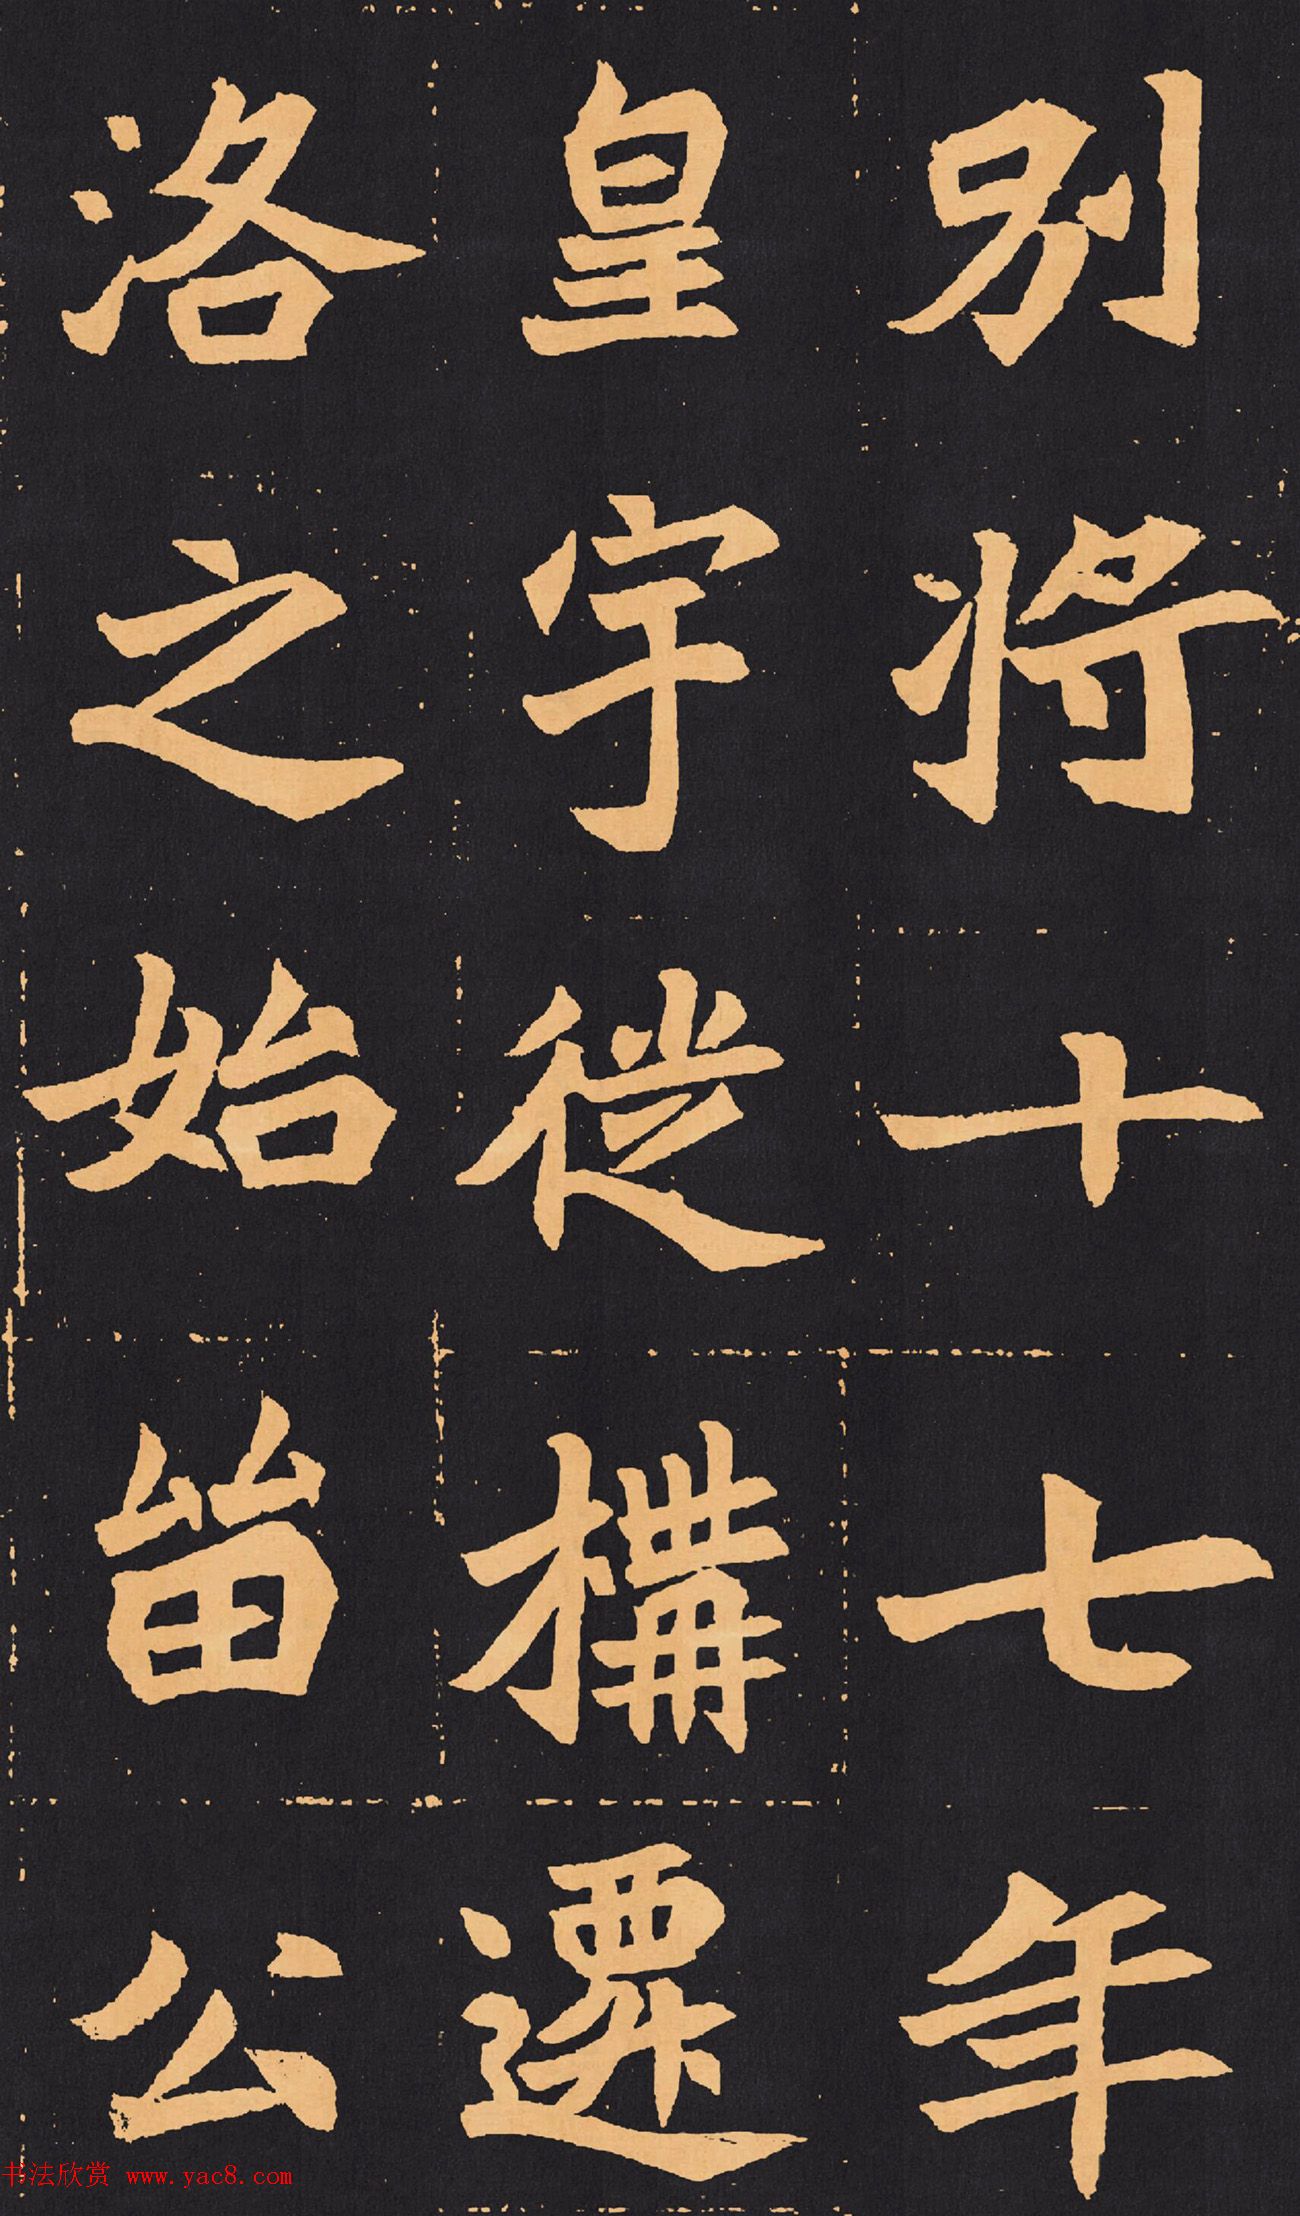 别將十七年
皇宇徙構遷
洛之始㽞公
书法欣赏 www.yac8.com